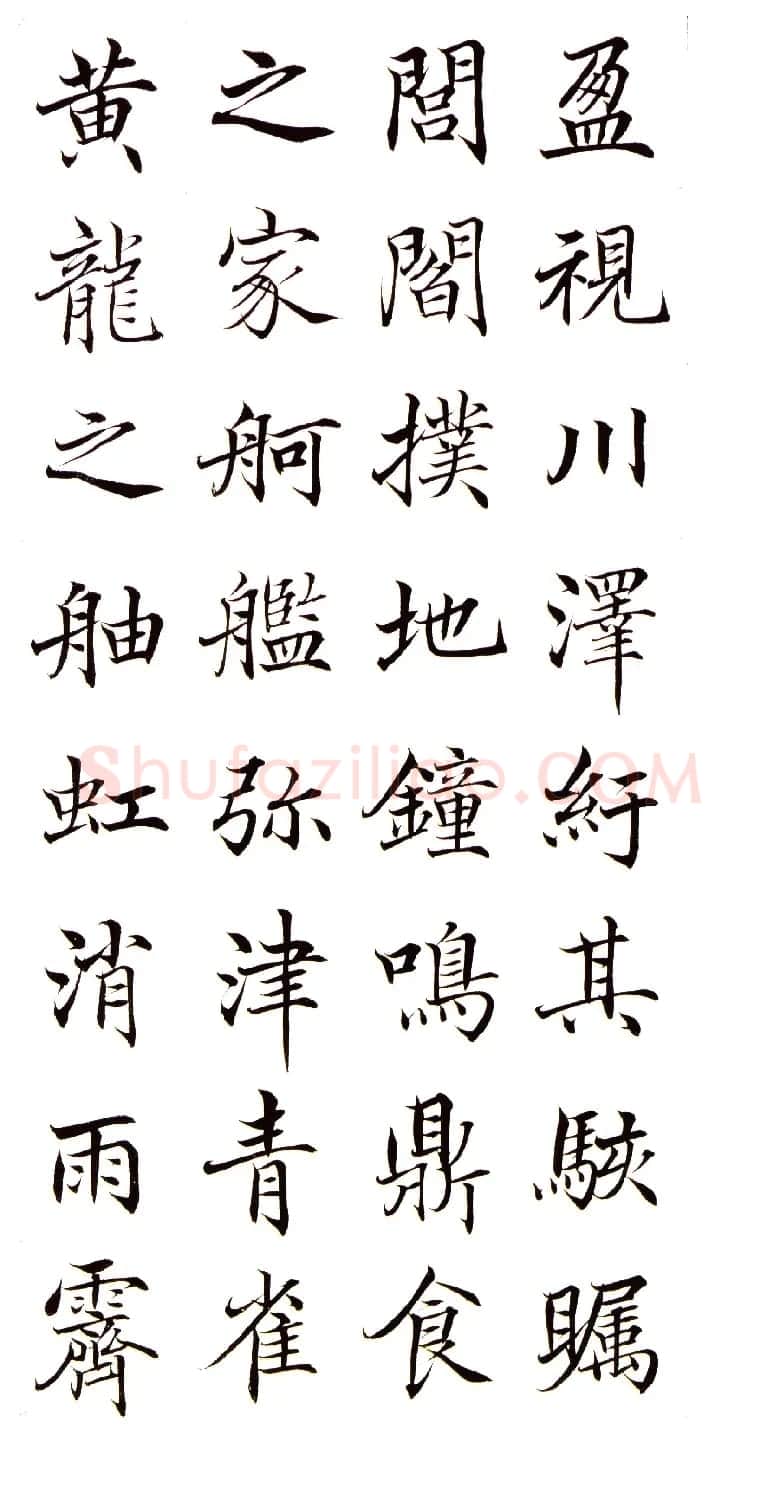 盈視川澤紆其駭瞩
閭閻撲地鐘鳴鼎食
之家舸艦弥津青雀
黄龍之舳虹消雨霽
Shufaziliao.COM